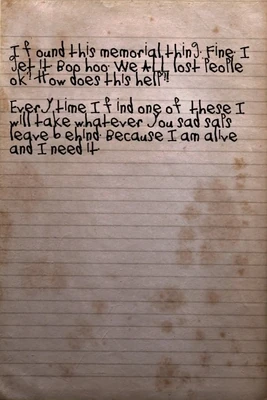 I found this memorial thing. Fine. I
get it Boo hoo. We ALL lost people
ok? How does this help!!
Every time I find one of these I
will take whatever you sad saps
leave behind. Because I am alive
and I need it